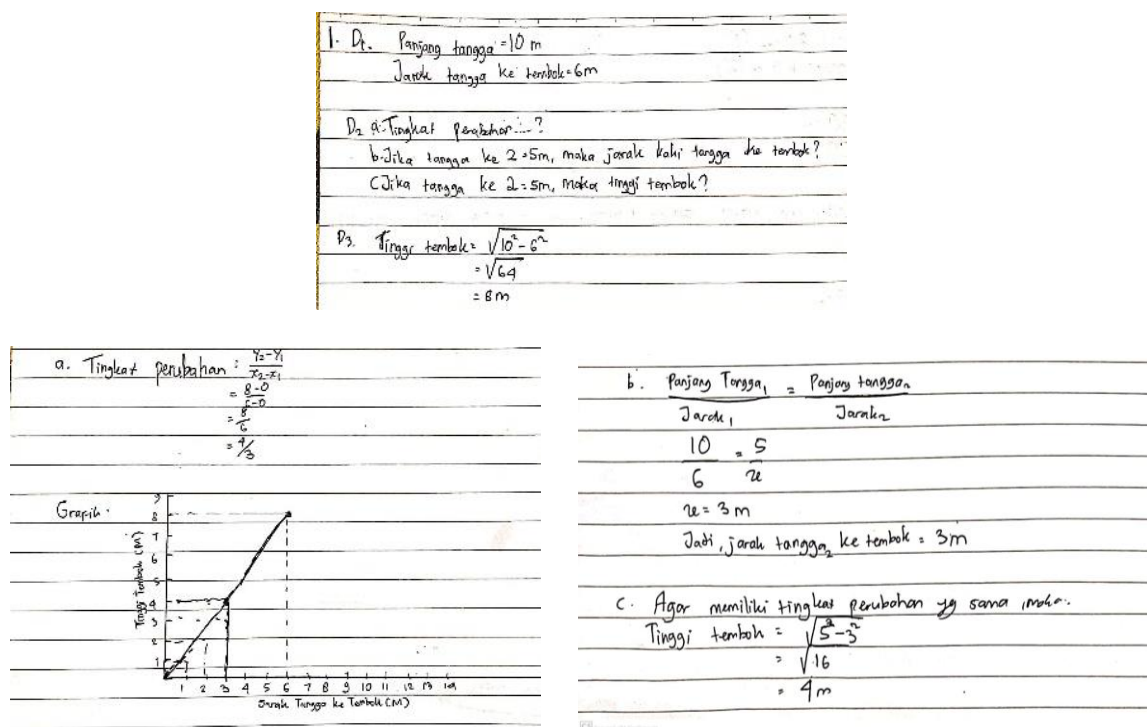 1. D1. Panjang tangga = 10 m
Jarak tangga ke tembok = 6m
D2 a. Tingkat perubahan ...?
b. Jika tangga ke 2 = 5m, maka jarak kaki tangga ke tembok?
c Jika tangga ke 2 = 5m, maka tinggi tembok?
D3. Tinggi tembok = √10² - 6²
= √64
= 8 m
a. Tingkat perubahan : y₂-y₁ / x₂-x₁
= 8-0 / 6-0
= 8/6
= 4/3
Grafik.
Tinggi Tembok (M)
9
8
7
6
5
4
3
2
1
1 2 3 4 5 6 7 8 9 10 11 12 13 14
Jarak Tangga ke Tembok (M)
b. Panjang Tangga₁ / Jarak₁ = Panjang tangga₂ / Jarak₂
10/6 = 5/x
x = 3 m
Jadi, jarak tangga₂ ke tembok = 3m
c. Agar memiliki tingkat perubahan yg sama, maka.
Tinggi tembok = √5²-3²
= √16
= 4m